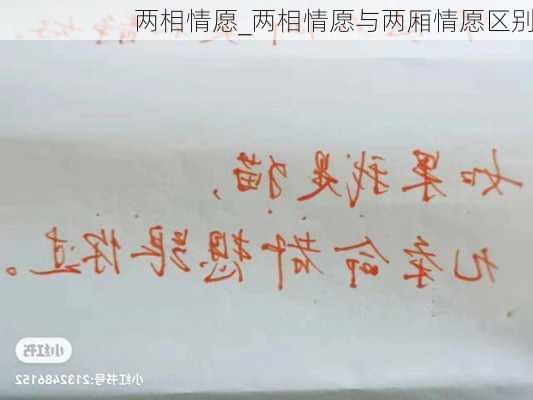 两相情愿_两相情愿与两厢情愿区别
如果我是只猫，
七条命都想跟你过。
小红书
小红书号:2132486152